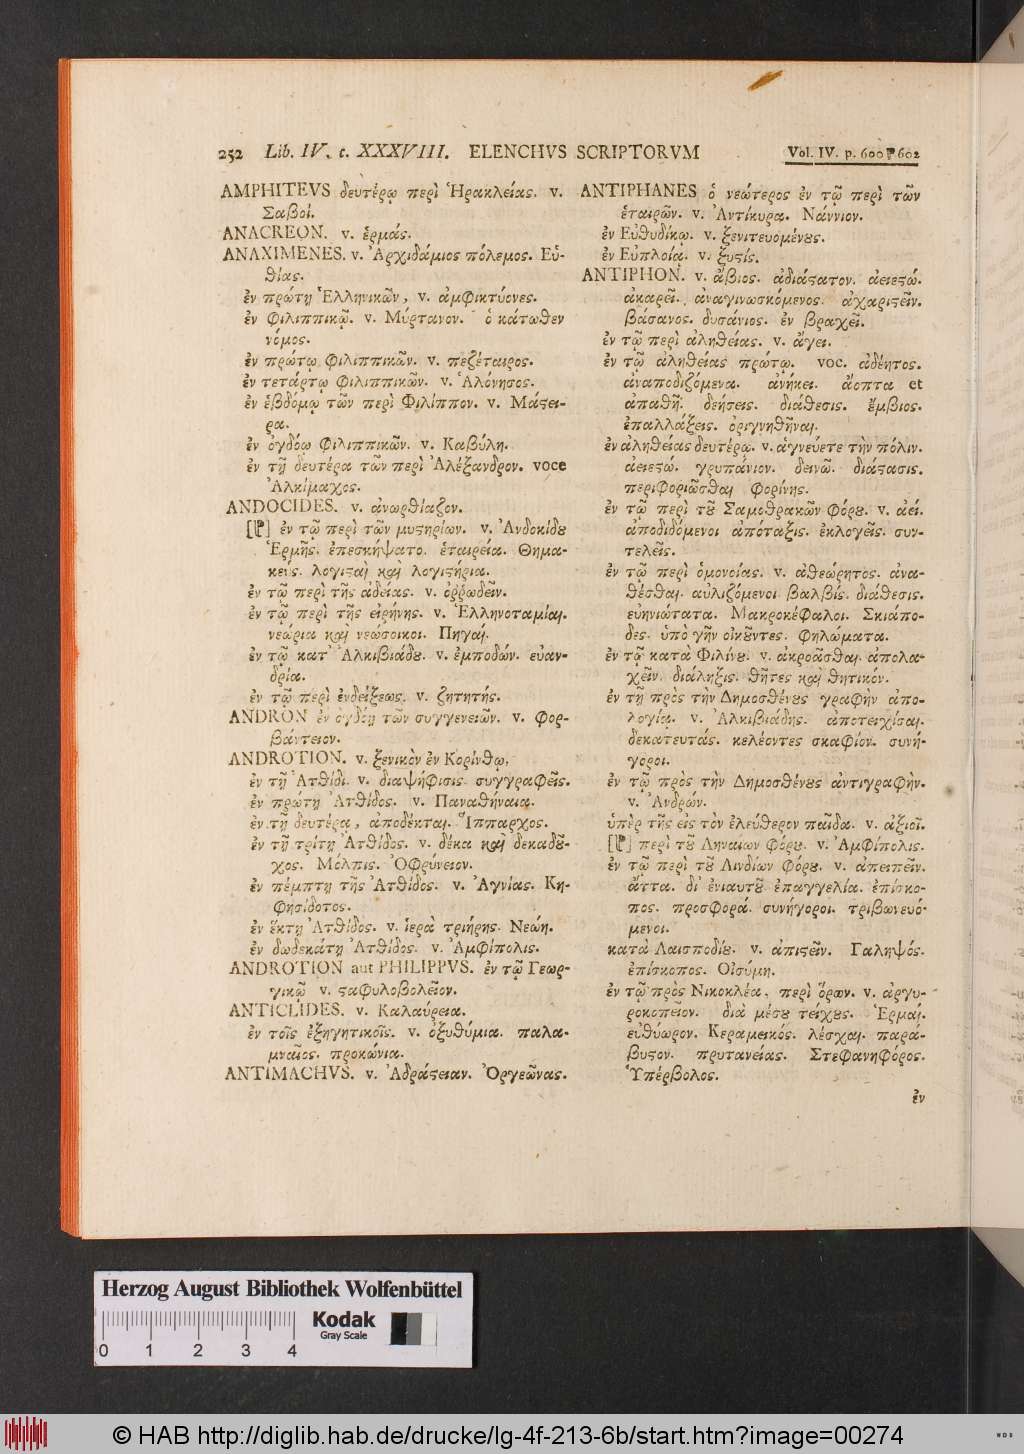 252 Lib. IV. c. XXXVIII. ELENCHVS SCRIPTORVM Vol. IV. p. 600 602
AMPHITEVS δευτέρῳ περὶ Ἡρακλείας. v.
Σαβοί.
ANACREON. v. ἑρμάς.
ANAXIMENES. v. Ἀρχιδάμιος πόλεμος. Εὐ-
θίας.
ἐν πρώτῃ Ἑλληνικῶν, v. ἀμφικτύονες.
ἐν Φιλιππικῷ. v. Μύρτανον. ὁ κάτωθεν
νόμος.
ἐν πρώτῳ Φιλιππικῶν. v. πεζέταιρος.
ἐν τετάρτῳ Φιλιππικῶν. v. Ἁλόνησος.
ἐν ἑβδόμῳ τῶν περὶ Φιλίππον. v. Μάϛει-
ρα.
ἐν ὀγδόω Φιλιππικῶν. v. Καβύλη.
ἐν τῇ δευτέρα τῶν περὶ Ἀλέξανδρον. voce
Ἀλκίμαχος.
ANDOCIDES. v. ἀνωρθίαζον.
[ ] ἐν τῷ περὶ τῶν μυϛηρίων. v. Ἀνδοκίδȣ
Ἑρμῆς. ἐπεσκήψατο. ἑταιρεία. Θημα-
κεύς. λογιϛαὶ καὶ λογιϛήρια.
ἐν τῷ περὶ τῆς ἀδείας. v. ὀῤῥωδεῖν.
ἐν τῷ περὶ τῆς εἰρήνης. v. Ἑλληνοταμίαι.
νεώρια καὶ νεώσοικοι. Πηγαί.
ἐν τῷ κατ' Ἀλκιβιάδȣ. v. ἐμποδών. εὐαν-
δρία.
ἐν τῷ περὶ ἐνδείξεως. v. ζητητής.
ANDRON ἐν ὀγδόῃ τῶν συγγενειῶν. v. Φορ-
βάντειον.
ANDROTION. v. ξενικὸν ἐν Κορίνθῳ.
ἐν τῇ Ἀτθίδι. v. διαψήφισις. συγγραφεῖς.
ἐν πρώτῃ Ἀτθίδος. v. Παναθήναια.
ἐν τῇ δευτέρα, ἀποδέκται. Ἵππαρχος.
ἐν τῇ τρίτῃ Ἀτθίδος. v. δέκα καὶ δεκαδȣ͂-
χος. Μόλπις. Ὀφρύνειον.
ἐν πέμπτῃ τῆς Ἀτθίδος. v. Ἁγνίας. Κη-
φησίδοτος.
ἐν ἕκτῃ Ἀτθίδος. v. ἱερὰ τριήρης. Νεώη.
ἐν δωδεκάτῃ Ἀτθίδος. v. Ἀμφίπολις.
ANDROTION aut PHILIPPVS. ἐν τῷ Γεωρ-
γικῷ v. ϛαφυλοβολεῖον.
ANTICLIDES. v. Καλαύρεια.
ἐν τοῖς ἐξηγητικοῖς. v. ὀξυθύμια. παλα-
μναῖος. προκώνια.
ANTIMACHVS. v. Ἀδράϛειαν. Ὀργεῶνας.
ANTIPHANES ὁ νεώτερος ἐν τῷ περὶ τῶν
ἑταιρῶν. v. Ἀντίκυρα. Νάννιον.
ἐν Εὐθυδίκῳ. v. ξενιτευομένȣς.
ἐν Εὐπλοία. v. ξυϛίς.
ANTIPHON. v. ἄβιος. ἀδιάϛατον. ἀειεϛώ.
ἀκαρεῖ. ἀναγινωσκόμενος. ἀχαριϛεῖν.
βάσανος. δυσάνιος. ἐν βραχεῖ.
ἐν τῷ περὶ ἀληθείας. v. ἄγει.
ἐν τῷ ἀληθείας πρώτῳ. voc. ἀδέητος.
ἀναποδιζόμενα. ἀνήκει. ἄοπτα et
ἀπαθῆ. δεήσεις. διάθεσις. ἔμβιος.
ἐπαλλάξεις. ὀριγνηθῆναι.
ἐν ἀληθείας δευτέρῳ. v. ἁγνεύετε τὴν πόλιν.
ἀειεϛώ. γρυπάνιον. δεινῶ. διάϛασις.
περιφοριῶσθαι φορίνης.
ἐν τῷ περὶ τȣ͂ Σαμοθρακῶν φόρȣ. v. ἀεί.
ἀποδιδόμενοι ἀπόταξις. ἐκλογεῖς. συν-
τελεῖς.
ἐν τῷ περὶ ὁμονοίας. v. ἀθεώρητος. ἀνα-
θέσθαι. αὐλιζόμενοι βαλβίς. διάθεσις.
εὐηνιώτατα. Μακροκέφαλοι. Σκιάπο-
δες. ὑπὸ γῆν οἰκȣ͂ντες. φηλώματα.
ἐν τῷ κατὰ Φιλίνȣ. v. ἀκροᾶσθαι. ἀπολα-
χεῖν. διάληξις. θῆτες καὶ θητικόν.
ἐν τῇ πρὸς τὴν Δημοσθένȣς γραφὴν ἀπο-
λογία. v. Ἀλκιβιάδης. ἀποτειχίσαι.
δεκατευτάς. κελέοντες σκαφίον. συνή-
γοροι.
ἐν τῷ πρὸς τὴν Δημοσθένȣς ἀντιγραφὴν.
v. Ἀνδρών.
ὑπὲρ τῆς εἰς τὸν ἐλεύθερον παῖδα. v. ἀξιοῖ.
[ ] περὶ τȣ͂ Ληναίων φόρȣ. v. Ἀμφίπολις.
ἐν τῷ περὶ τȣ͂ Λινδίων φόρȣ. v. ἀπειπεῖν.
ἄττα. δι' ἐνιαυτȣ͂ ἐπαγγελία. ἐπίσκο-
πος. προσφορά. συνήγοροι. τριβωνευό-
μενοι.
κατὰ Λαισποδίȣ. v. ἀπιϛεῖν. Γαληψός.
ἐπίσκοπος. Οἰσύμη.
ἐν τῷ πρὸς Νικοκλέα, περὶ ὅρων. v. ἀργυ-
ροκοπεῖον. διὰ μέσȣ τειχȣς. Ἑρμαῖ.
εὐθύωρον. Κεραμεικός. λέσχαι. παρά-
βυϛον. πρυτανείας. Στεφανηφόρος.
Ὑπέρβολος.
ἐν
Herzog August Bibliothek Wolfenbüttel
Kodak
Gray Scale
0 1 2 3 4
© HAB http://diglib.hab.de/drucke/lg-4f-213-6b/start.htm?image=00274